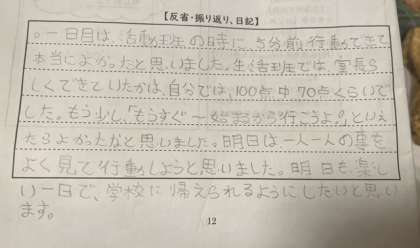 【反省・振り返り、日記】
。一日目は、活動班の時に、5分前行動できて
本当によかったと思いました。生活班では、室長ら
しくできていたかは、自分では、100点中70点くらいで
した。もう少し、「もうすぐ〜始まるから行こうよ。」といえ
たらよかったなと思いました。明日は一人一人の事を
よく見て行動しようと思いました。明日も楽し
い一日で、学校に帰えられるようにしたいと思い
ます。
12